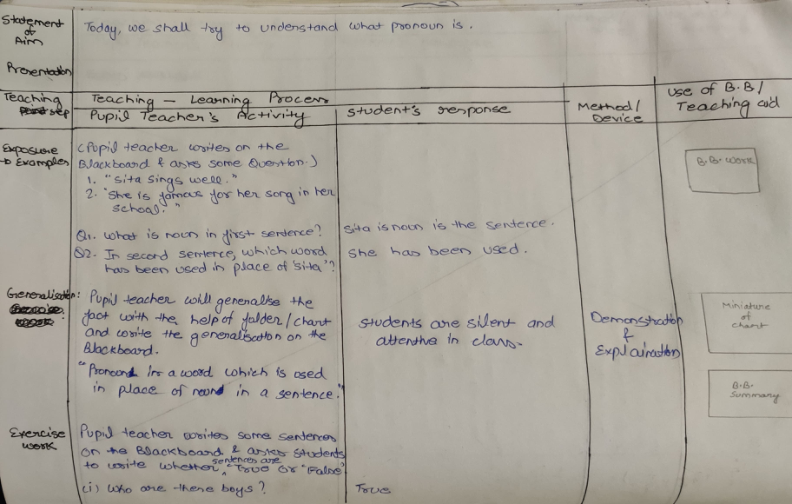 Statement
of
Aim
Today, we shall try to understand what pronoun is.
Presentation
Teaching
step
Teaching - Learning Process
Pupil Teacher's Activity
Student's response
Method/
Device
Use of B.B/
Teaching aid
Exposure
to Examples
(Pupil teacher writes on the
Blackboard & asks some Question.)
1. "Sita sings well."
2. "She is famous for her song in her
school."
B.B. work
Q1. What is noun in first sentence?
Sita is noun is the sentence.
Q2. In second sentence, which word
has been used in place of 'sita'?
She has been used.
Generalisation:
Pupil teacher will generalise the
fact with the help of folder/chart
and write the generalisation on the
Blackboard.
"Pronoun is a word which is used
in place of noun in a sentence."
Students are silent and
attentive in class.
Demonstration
&
Explaination
Miniature
of
chart
B.B.
Summary
Exercise
work
Pupil teacher writes some sentences
on the Blackboard & asks students
to write whether sentences are "True or "False"
(i) Who are these boys?
True